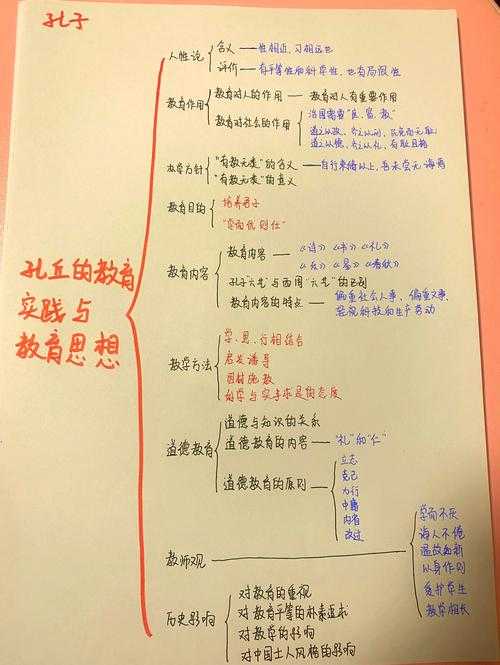 孔子
孔丘的教育
实践与
教育思想
人性论
含义 — 性相近,习相远也
评价 — 有平等性和科学性,也有局限性
教育作用
教育对人的作用 — 教育对人有重要作用
教育对社会的作用
治国需要"庶、富、教"
道之以政,齐之以刑,民免而无耻
道之以德,齐之以礼,有耻且格
办学方针
"有教无类"的含义 — 自行束脩以上,吾未尝无诲焉
"有教无类"的意义
教育目的
培养君子
"学而优则仕"
教育内容
教育内容 — 《诗》《书》《礼》
《乐》《易》《春秋》
孔子"六艺"与西周"六艺"的区别
教育内容的特点 — 偏重社会人事、偏重文事、
轻视科技和生产劳动
教学方法
学、思、行相结合
启发诱导
因材施教
好学与实事求是的态度
道德教育
道德与知识的关系
道德教育的内容 — "礼"和"仁"
道德教育的原则
立志
克己
力行
中庸
内省
改过
教师观
学而不厌
诲人不倦
温故知新
以身作则
爱护学生
教学相长
历史影响
对教育的重视
对教育平等的朴素追求
对教学的影响
对中国士人风格的影响